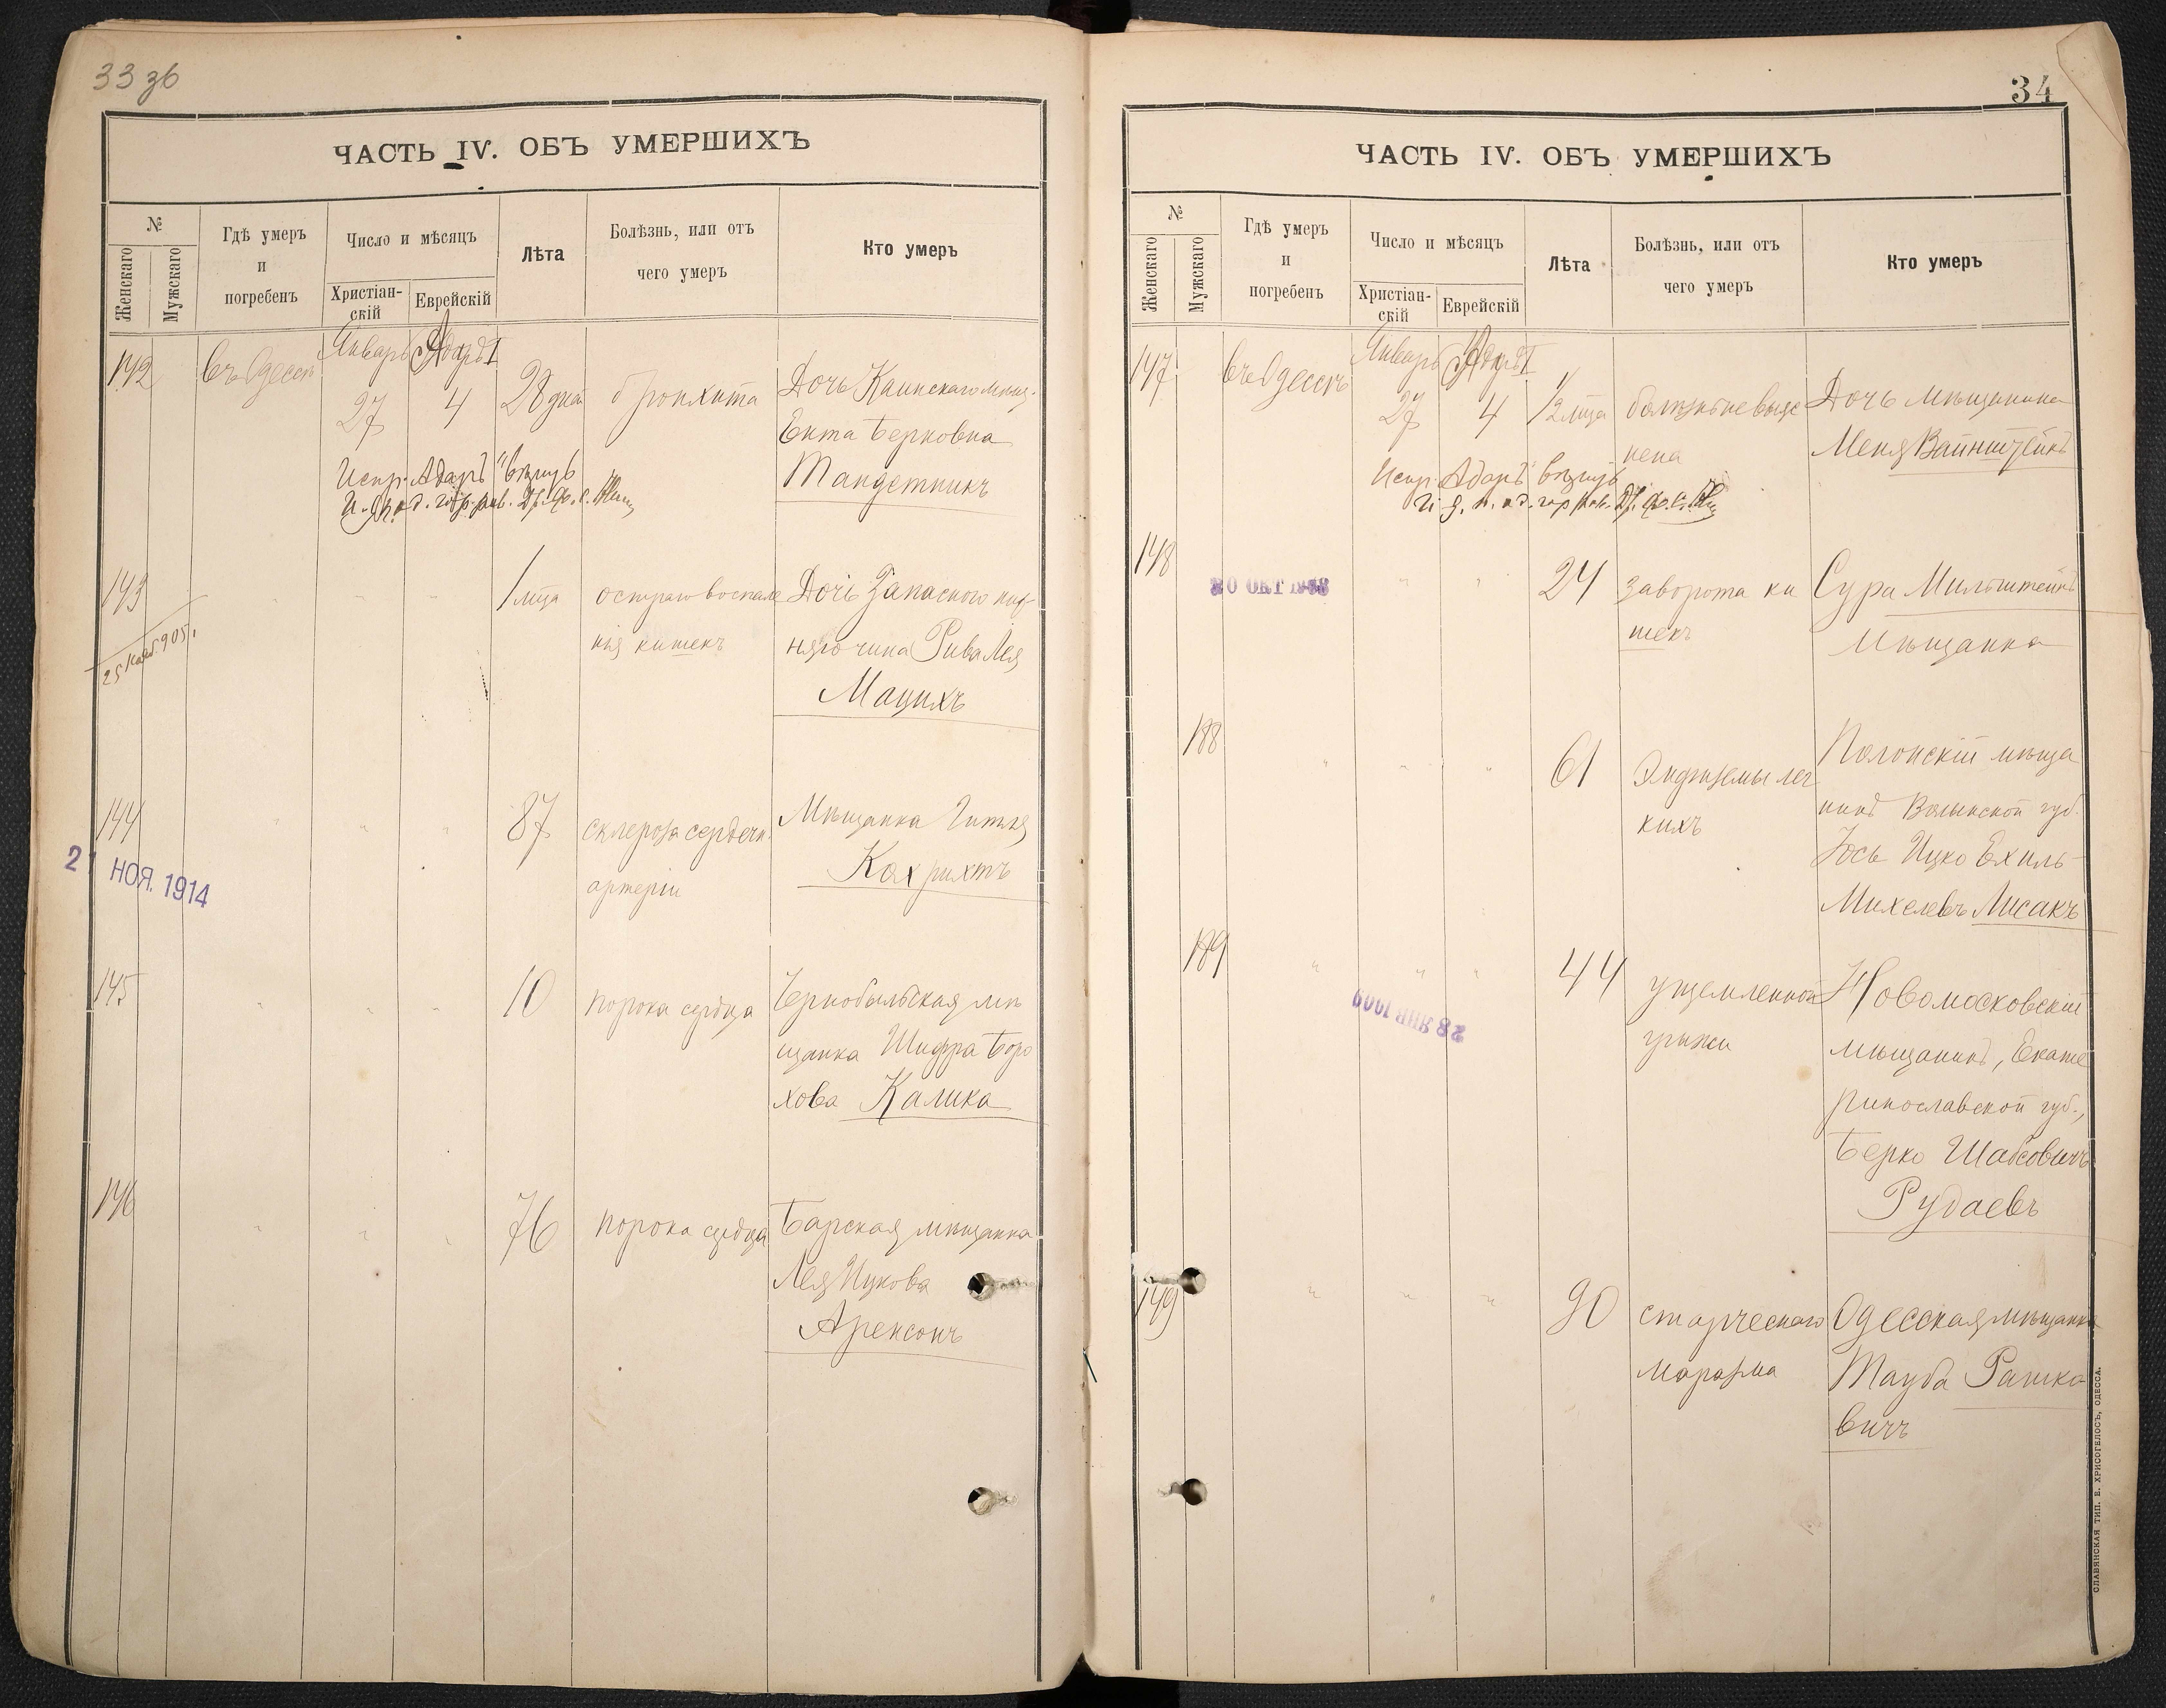 33 зв
ЧАСТЬ IV. ОБЪ УМЕРШИХЪ
№
Женскаго
Мужскаго
Гдѣ умеръ
и
погребенъ
Число и мѣсяцъ
Христіан-
скій
Еврейскій
Лѣта
Болѣзнь, или отъ
чего умеръ
Кто умеръ
142
въ Одессѣ
Январь
27
Адаръ I
4
28 дней
бронхита
Дочь Каинскаго мѣщ.
Ента Берковна
Мандетникъ
Испр. Адаръ
143
25 Нояб. 905.
1 мѣца
остраго воспале
нія кишекъ
Дочь Запаснаго ниж
няго чина Рива Лея
Мацихъ
144
21 НОЯ. 1914
87
склероза сердечн.
артеріи
Мѣщанка Гитля
Кахрихтъ
145
10
порока сердца
Чернобыльская мѣ
щанка Шифра Боро
хова Калика
146
76
порока сердца
Барская мѣщанка
Лея Ицкова
Аренсонъ
34
ЧАСТЬ IV. ОБЪ УМЕРШИХЪ
№
Женскаго
Мужскаго
Гдѣ умеръ
и
погребенъ
Число и мѣсяцъ
Христіан-
скій
Еврейскій
Лѣта
Болѣзнь, или отъ
чего умеръ
Кто умеръ
147
въ Одессѣ
Январь
27
Адаръ I
4
1/2 мѣца
Дочь мѣщанина
Меня Вайнштейнъ
Испр. Адаръ
148
20 ОКТ
24
заворота ки
шекъ
Сура Мильштейнъ
Мѣщанка
188
61
Эмфиземы лег
кихъ
Полонскій мѣща
нинъ Волынской губ.
Іось Ицко Ехиль
Михелевъ Лисакъ
189
28 ЯНВ 1909
44
ущемленной
грыжи
Новомосковскій
мѣщанинъ, Екате
ринославской губ.,
Берко Шабсовичъ
Рудаевъ
149
90
старческаго
маразма
Одесская мѣщанка
Тауба Рашко
вичъ
СЛАВЯНСКАЯ ТИП. Е. ХРИСОГЕЛОСЪ, ОДЕССА.